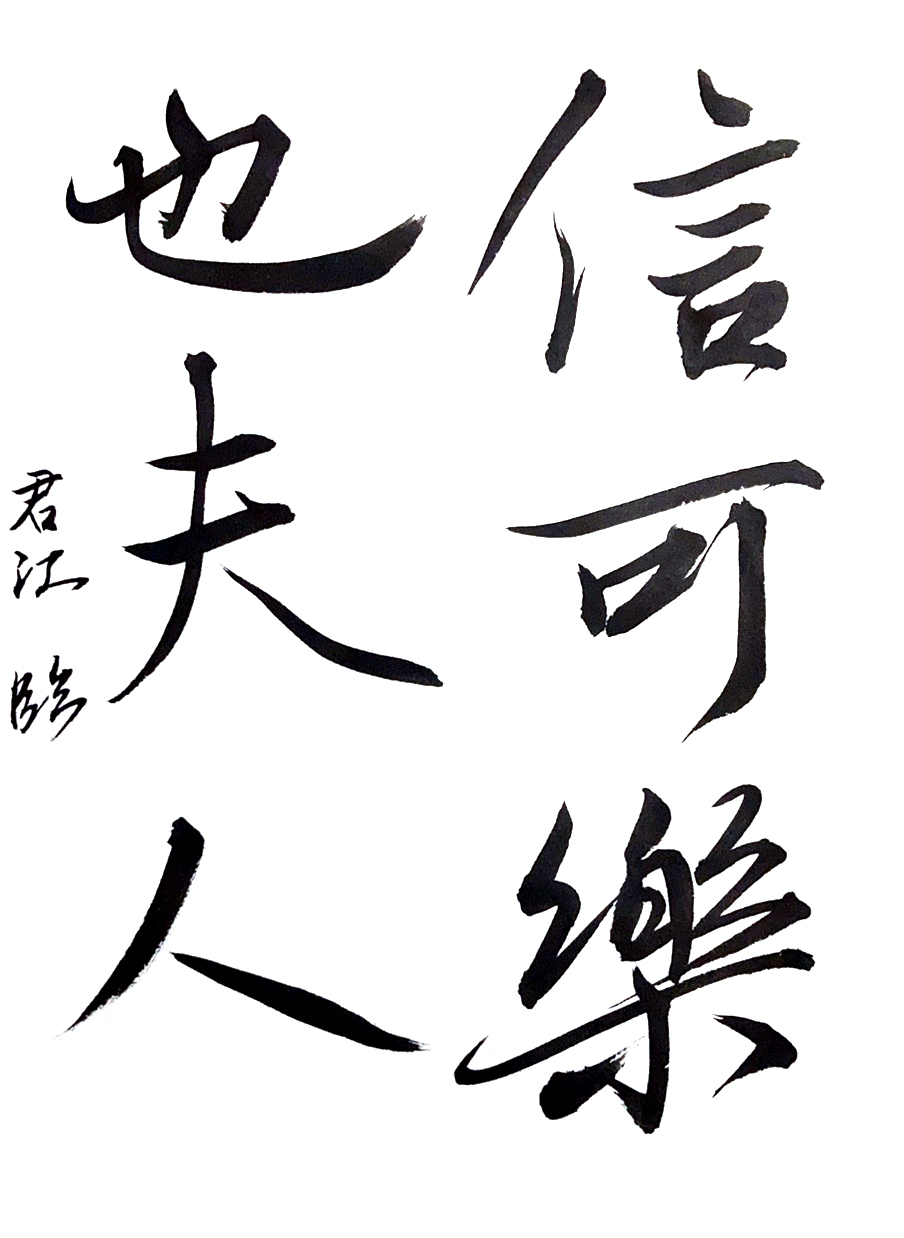 信可樂
也夫人
君江 臨